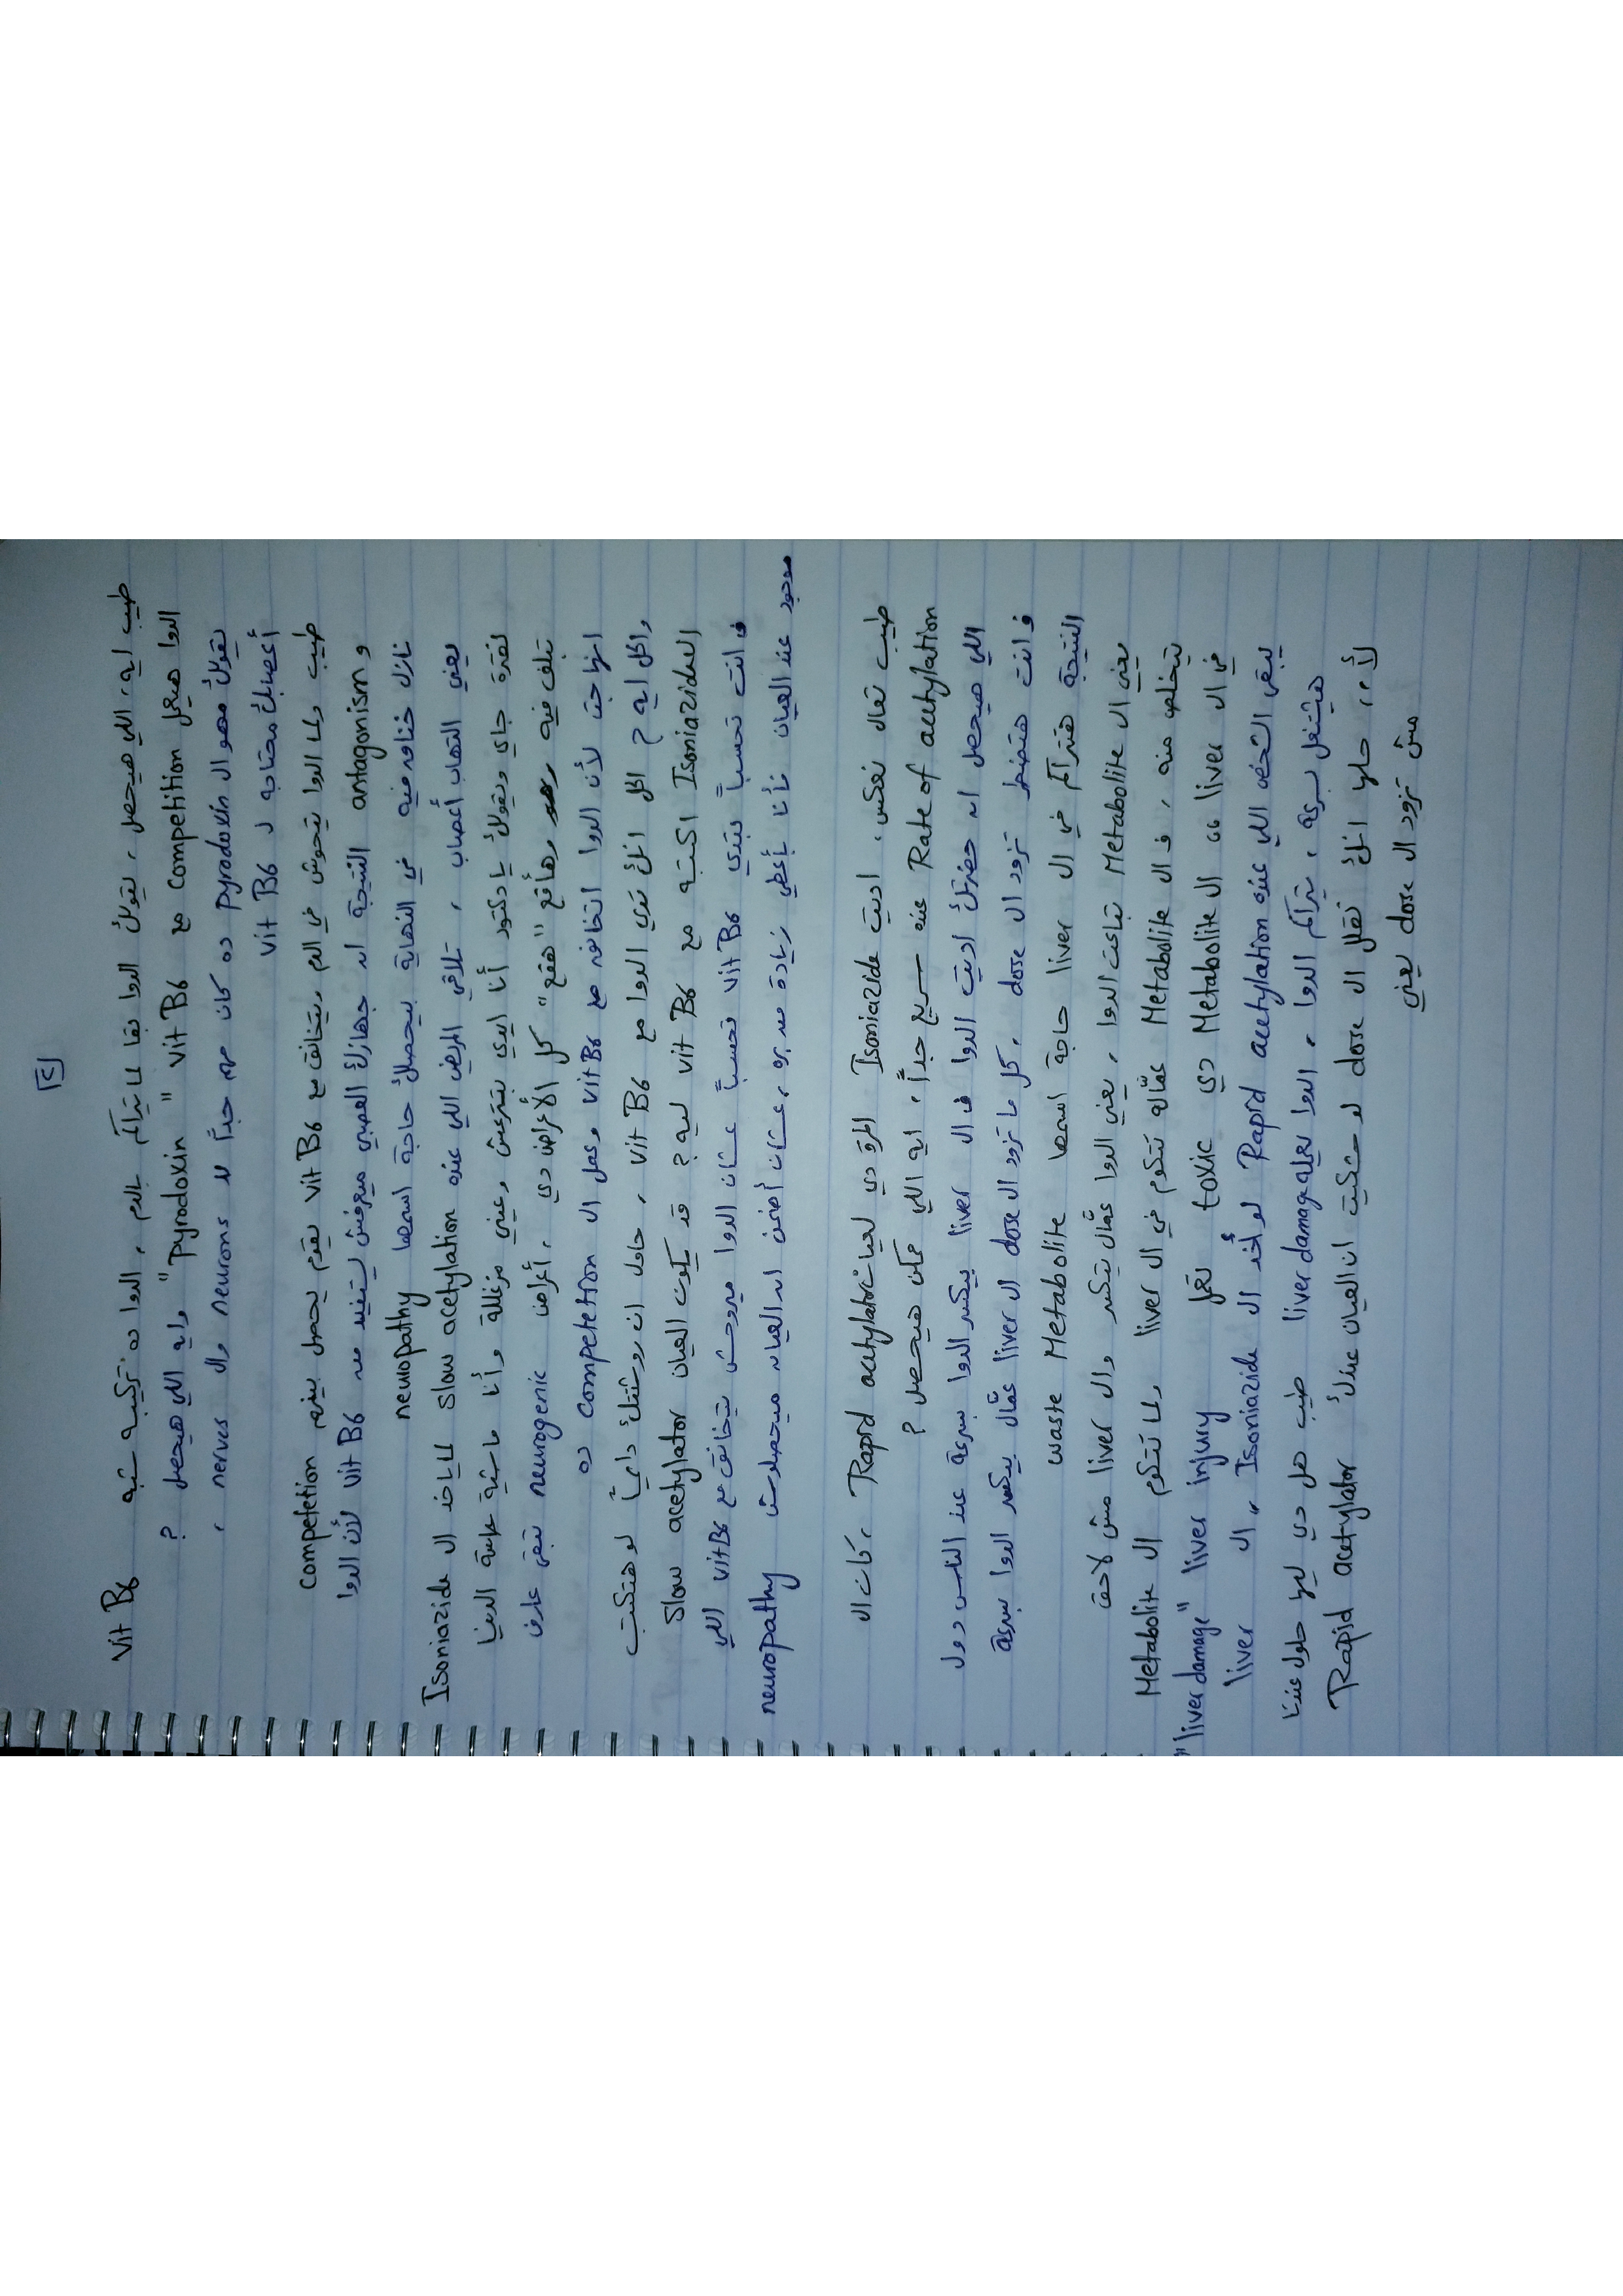 [٤]
طيب ايه، اللي هيحصل، يقولك الدوا بقا لما يتراكم بالدم، الدوا ده تركيبه شبه Vit B6
الدوا هيعمل competition مع Vit B6 "Pyrodoxin" وايه اللي هيحصل ؟
يقولك مهو ال Pyrodoxin ده كان مهم جداً لل neurons وال nerves،
أعصابك محتاجه ل Vit B6
طيب ولما الدوا يتحوش في الدم ويتخانق مع Vit B6 يقوم يحصل بينهم competetion
و antagonism النتيجة ان جهازك العصبي ميعرفش يستفيد من Vit B6 لأن الدوا
نازل خناقه فيه في النهاية بيحصلك حاجة اسمها neuropathy
يعني التهاب أعصاب، تلاقي المريض اللي عنده Slow acetylation لما ياخد ال Isoniazide
لفترة جاي ويقولك يا دكتور أنا ايدي بتترعش وعيني مزغللة وأنا ماشية الدنيا
بتلف فيه وهأقع "هقع" كل الأعراض دي، أعراض neurogenic تبقى عارف
انها جت لأن الدوا اتخانق مع Vit B6 وعمل ال competetion ده
والحل ايه ؟ الحل انك تدي الدوا مع Vit B6، حاول ان روشتتك دايماً لو هتكتب
Isoniazide اكتبه مع Vit B6 ليه ؟ قد يكون العيان Slow acetylator
ف انت تحسباً تبتدي Vit B6 تحسباً عشان الدوا ميروحش يتخانق مع Vit B6 اللي
موجود عند العيان فأنا بأعطي زيادة منه، عشان أضمن ان العيان ميحصلوش neuropathy
طيب تعال نعكس، اديت Isoniazide المرة دي لعيان Rapid acetylator، كان ال
Rate of acetylation عنده سريع جداً، ايه اللي ممكن هيحصل ؟
اللي هيحصل ان حضرتك اديت الدوا ف ال liver بيكسر الدوا بسرعة عند الناس دول
ف انت هتضطر تزود ال dose، كل ما تزود ال dose ال liver عمّال بيكسر الدوا بسرعة
النتيجة هتتراكم في ال liver حاجة اسمها waste Metabolite
يعني ال Metabolite بتاعت الدوا، يعني الدوا عمّال يتكسر وال liver مش لاحق
يتخلص منه، ف ال Metabolite عمّاله تتكوم في ال liver ولما تتكوم ال Metabolit
في ال liver ،، ال Metabolite دي toxic تعمل liver injury "liver damage"
يبقى الشخص اللي عنده Rapid acetylation لو أخد ال Isoniazide،، ال liver
هيشتغل بسرعة، يتراكم الدوا، الدوا يعمله liver damage طيب هل دي ليها حلول عندنا
لأ،، حلها انك تقلل ال dose لو شكيت ان العيان عندك Rapid acetylator
يعني dose مش تزود ال